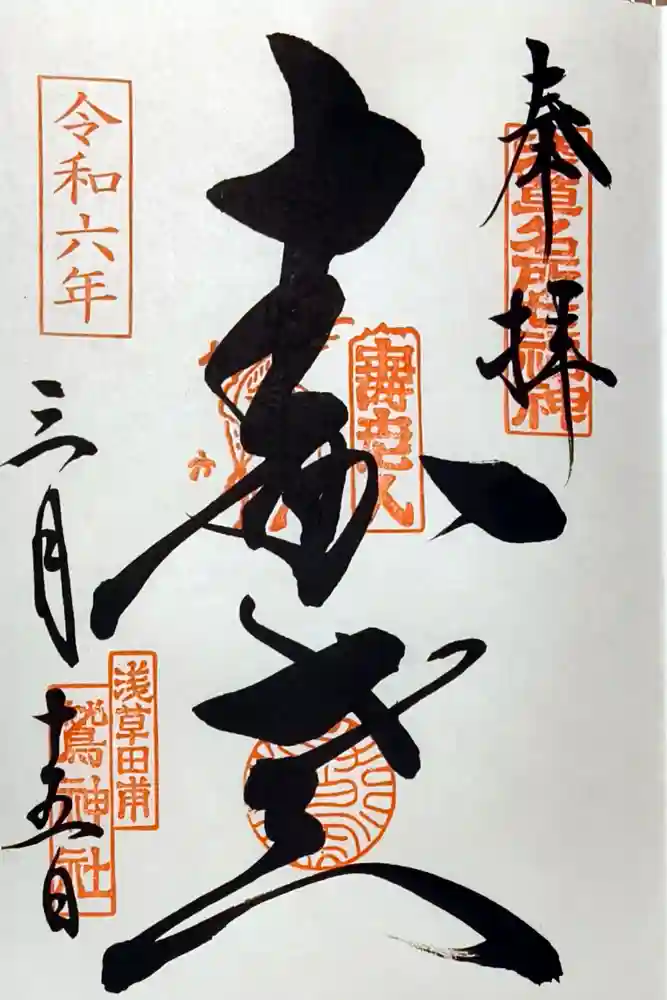 奉拝
浅草名所七福神
寿老人
壽老人
令和六年
三月十五日
浅草田甫
鷲神社